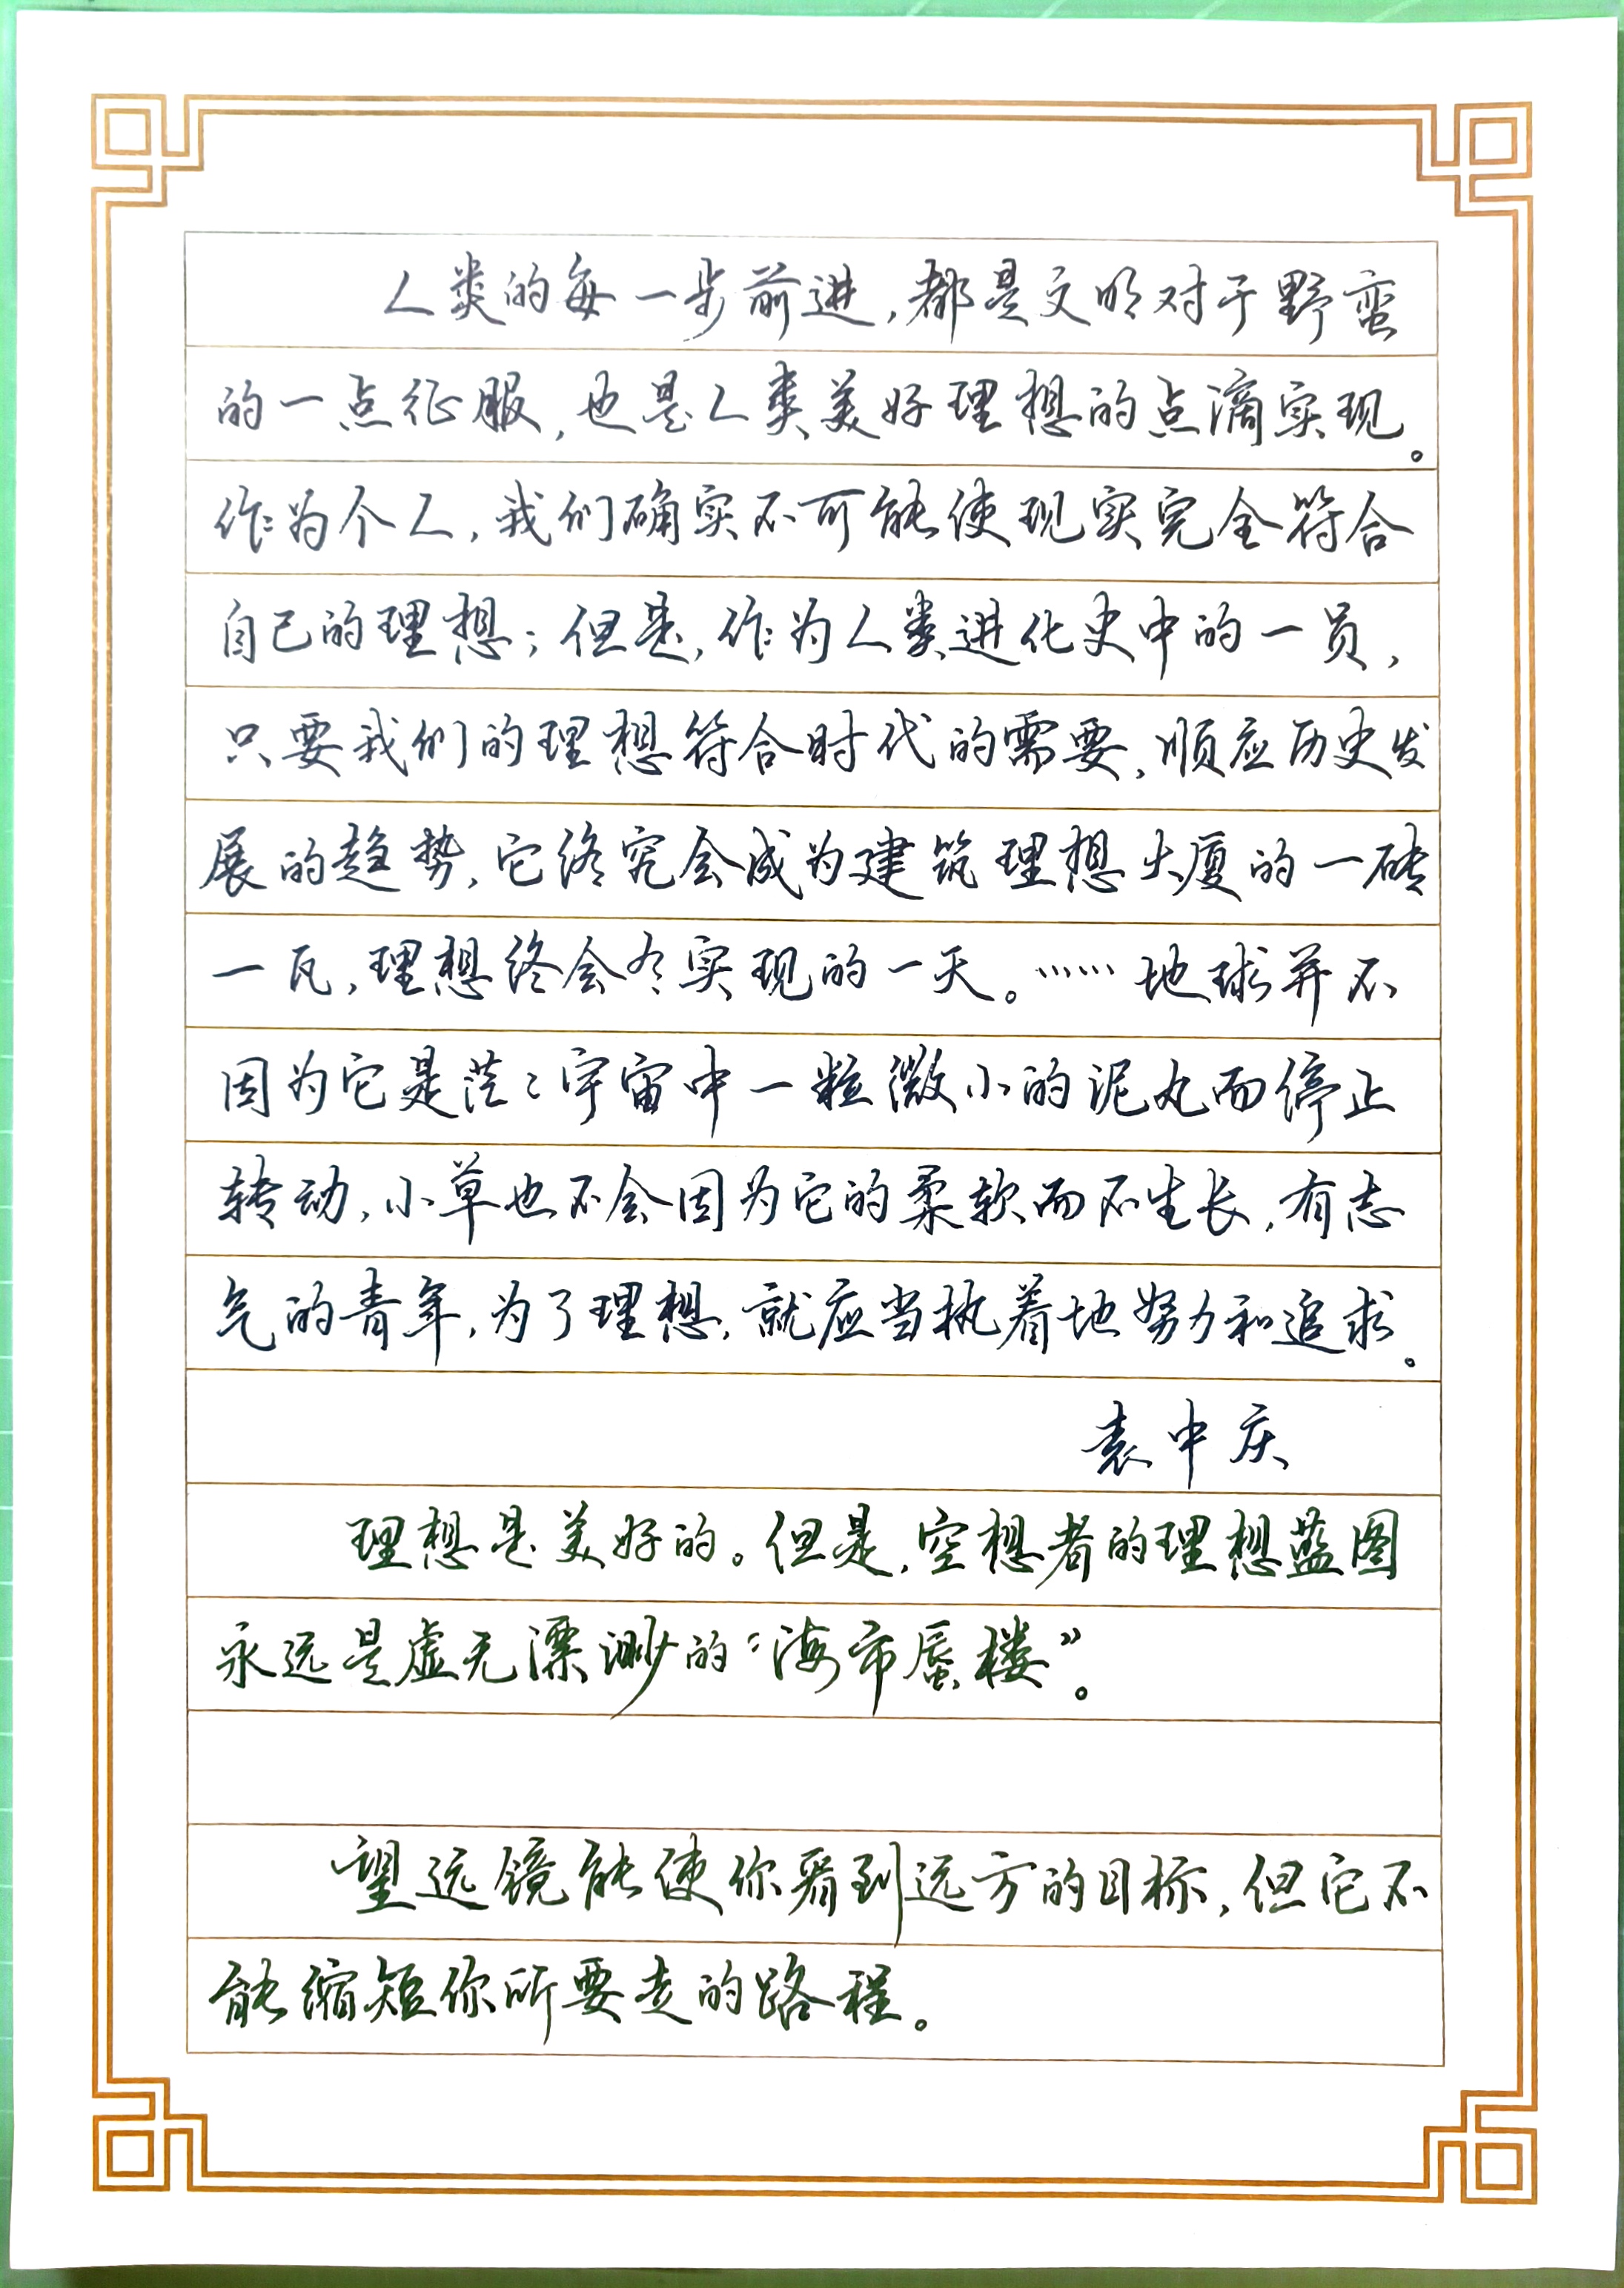 人类的每一步前进，都是文明对于野蛮
的一点征服，也是人类美好理想的点滴实现。
作为个人，我们确实不可能使现实完全符合
自己的理想；但是，作为人类进化史中的一员，
只要我们的理想符合时代的需要，顺应历史发
展的趋势，它终究会成为建筑理想大厦的一砖
一瓦，理想终会有实现的一天。……地球并不
因为它是茫々宇宙中一粒微小的泥丸而停止
转动，小草也不会因为它的柔软而不生长，有志
气的青年，为了理想，就应当执着地努力和追求。
袁中庆
理想是美好的。但是，空想者的理想蓝图
永远是虚无漂渺的“海市蜃楼”。
望远镜能使你看到远方的目标，但它不
能缩短你所要走的路程。